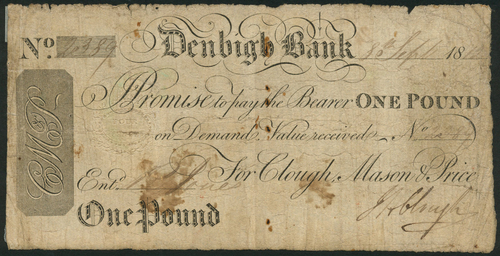 No. Denbigh Bank Sept. 18
I Promise to pay the Bearer ONE POUND
on Demand Value received No.
For Clough, Mason & Price
Entd.
One Pound
CM&P